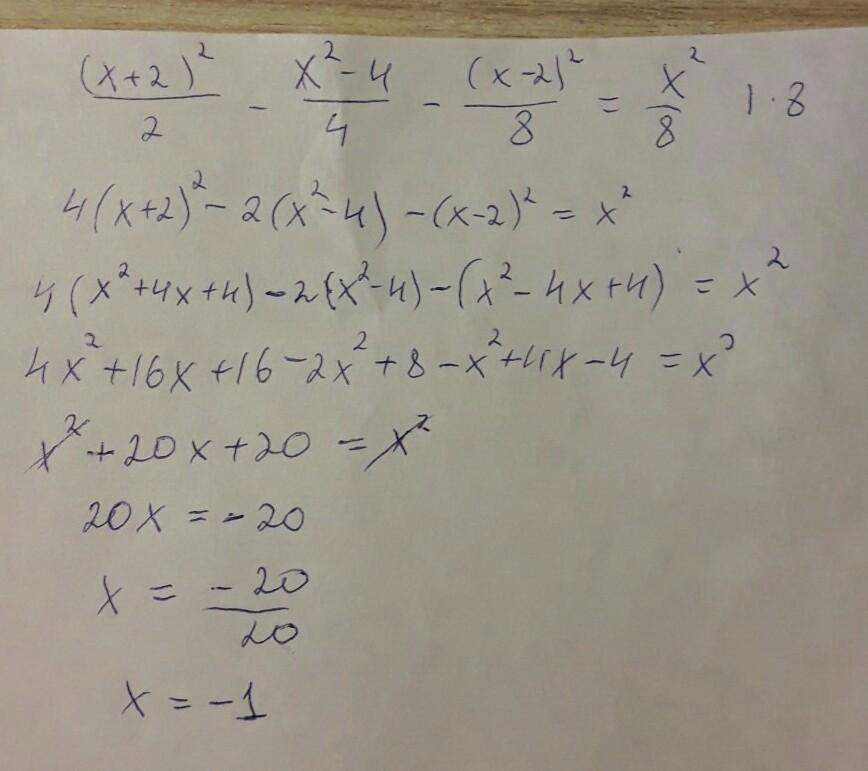 (x+2)²/2 - x²-4/4 - (x-2)²/8 = x²/8 | · 8
4(x+2)² - 2(x²-4) - (x-2)² = x²
4(x²+4x+4) - 2(x²-4) - (x²-4x+4) = x²
4x²+16x+16-2x²+8-x²+4x-4 = x²
x²+20x+20 = x²
20x = -20
x = -20/20
x = -1